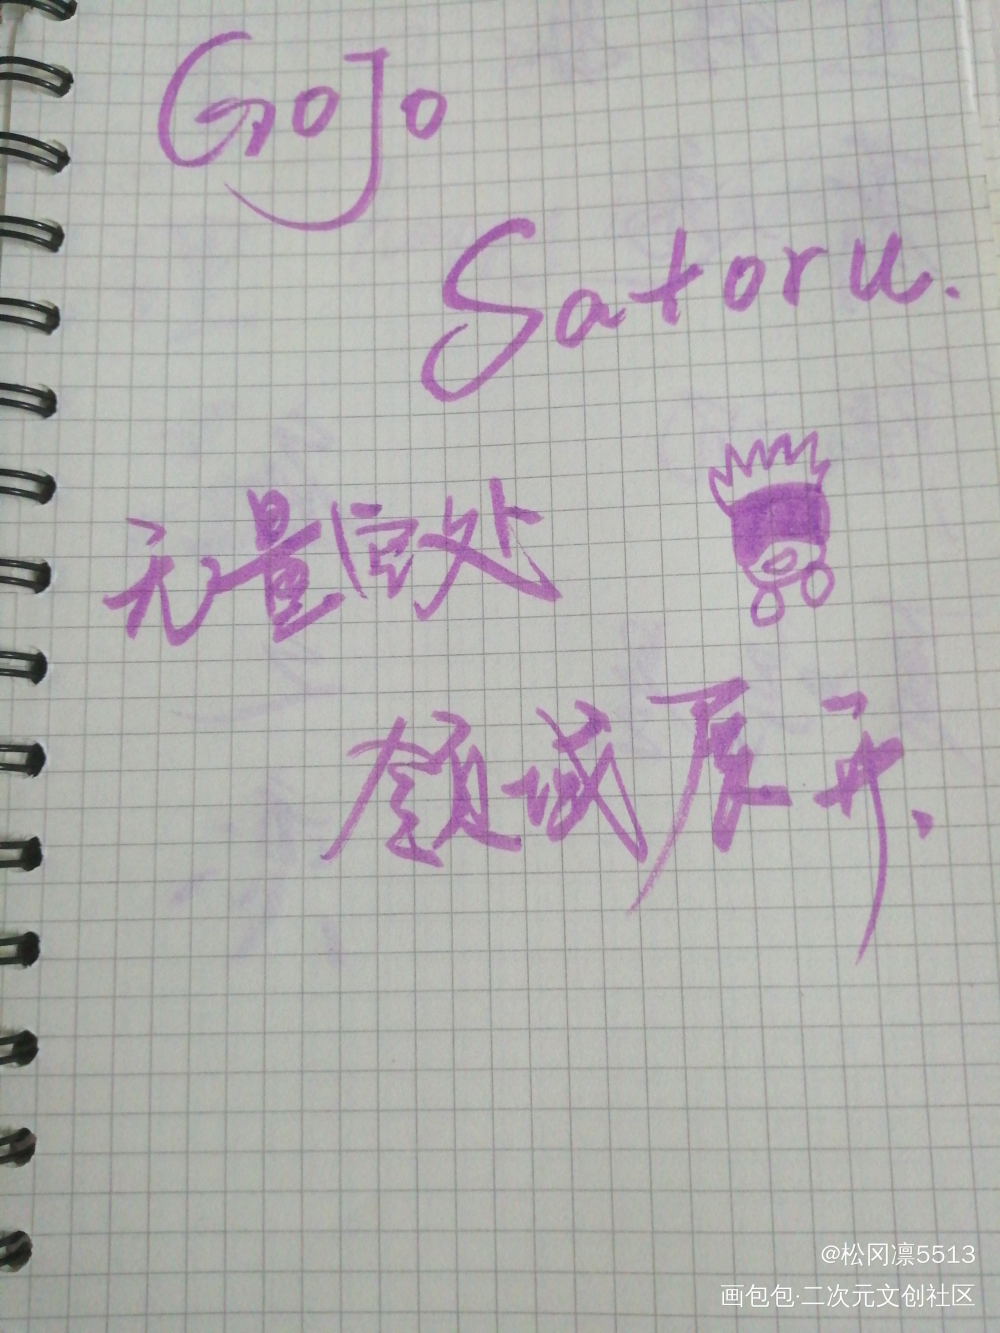 GoJo
Satoru.
无量空处
领域展开、
@松冈凛5513
画包包·二次元文创社区